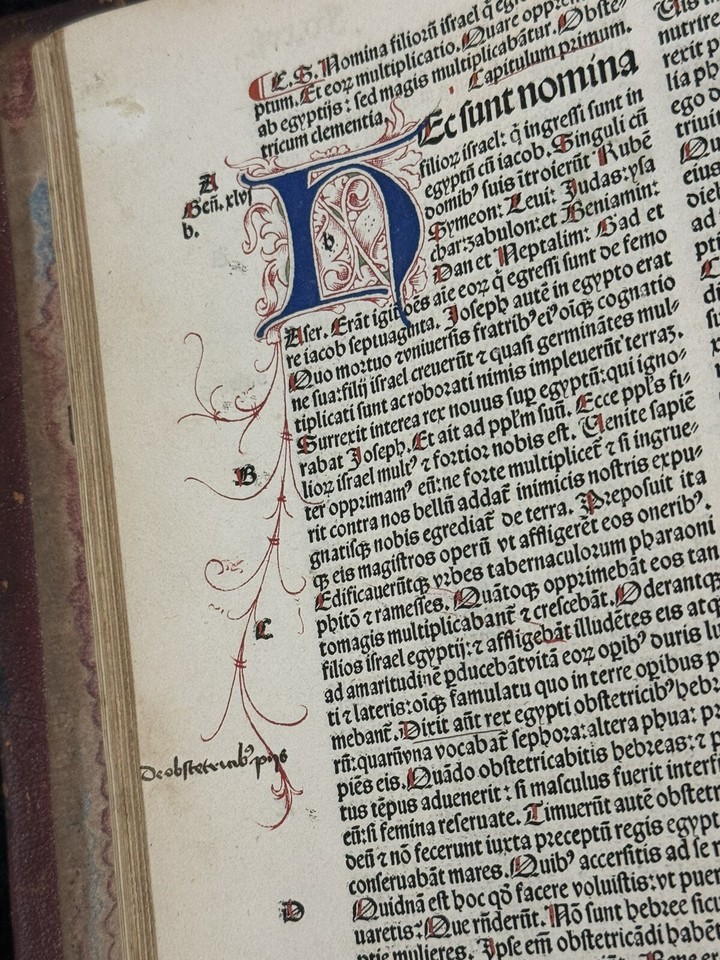 E. S. Nomina filioꝝ israel q̄
ptum. Et eoꝝ multiplicatio. Quare
ab egyptijs: sed magis multiplicabātur. Obste
tricum clementia. Capitulum primum.
Ec sunt nomina
filioꝝ israel: q̄ ingressi sunt in
egyptū cū iacob. Singuli cū
domibꝰ suis ītroierūt Rubē
Symeon: Leui: Judas: ysa
char: zabulon: et Beniamin:
Dan et Neptalim: Gad et
Aser. Erāt igit̄ oēs aīe eoꝝ q̄ egressi sunt de femo
re iacob septuaginta. Joseph autē in egypto erat
Quo mortuo ⁊ vniuersis fratribꝰ eiꝰ oīqꝫ cognatio
ne sua: filij israel creuerūt ⁊ quasi germinātes mul⸗
tiplicati sunt ac roborati nimis impleuerūt terrā.
Surrexit interea rex nouus suꝑ egyptū: qui igno⸗
rabat Joseph. Et ait ad ppl'm suū. Ecce ppl's fi⸗
lioꝝ israel multꝰ ⁊ fortior nobis est. Uenite sapiē
ter opprimamꝰ eū: ne forte multiplicet̄ ⁊ si ingrue⸗
rit contra nos bellū addat̄ inimicis nostris expu⸗
gnatisqꝫ nobis egrediat̄ de terra. Preposuit ita
qꝫ eis magistros operū vt affligerēt eos oneribꝰ.
Edificauerūtqꝫ vrbes tabernaculorum pharaoni
phitō ⁊ ramesses. Quātoqꝫ opprimebāt eos tan
tomagis multiplicabant̄ ⁊ crescebāt. Oderantqꝫ
filios israel egyptij: ⁊ affligebāt illudētes eis atqꝫ
ad amaritudinē ꝑducebāt vitā eoꝝ opibꝰ duris lu
ti ⁊ lateris: oīqꝫ famulatu quo in terre opibus p
mebant̄. Dixit aūt rex egypti obstetricibꝰ hebr
rū: quarū vna vocabat̄ sephora: altera phua: p
piēs eis. Quādo obstetricabitis hebreas: ⁊ p
tus tēpus aduenerit: si masculus fuerit interfi
eū: si femina reseruate. Timuerūt autē obstetr
deū ⁊ nō fecerunt iuxta preceptū regis egypt
conseruabāt mares. Quibꝰ accersitis ad se r
Quidnā est hoc qđ facere voluistis: vt puer
uaretis: Que rñderūt. Nō sunt hebree sicu
mulieres. Ipse em̄ obstetricādi habēt
A
Geñ. xlvj
b.
h
B
C
De obstetricibꝰ pijs
D
nutrire
rexit p
lia ph
ego d
eius
ad